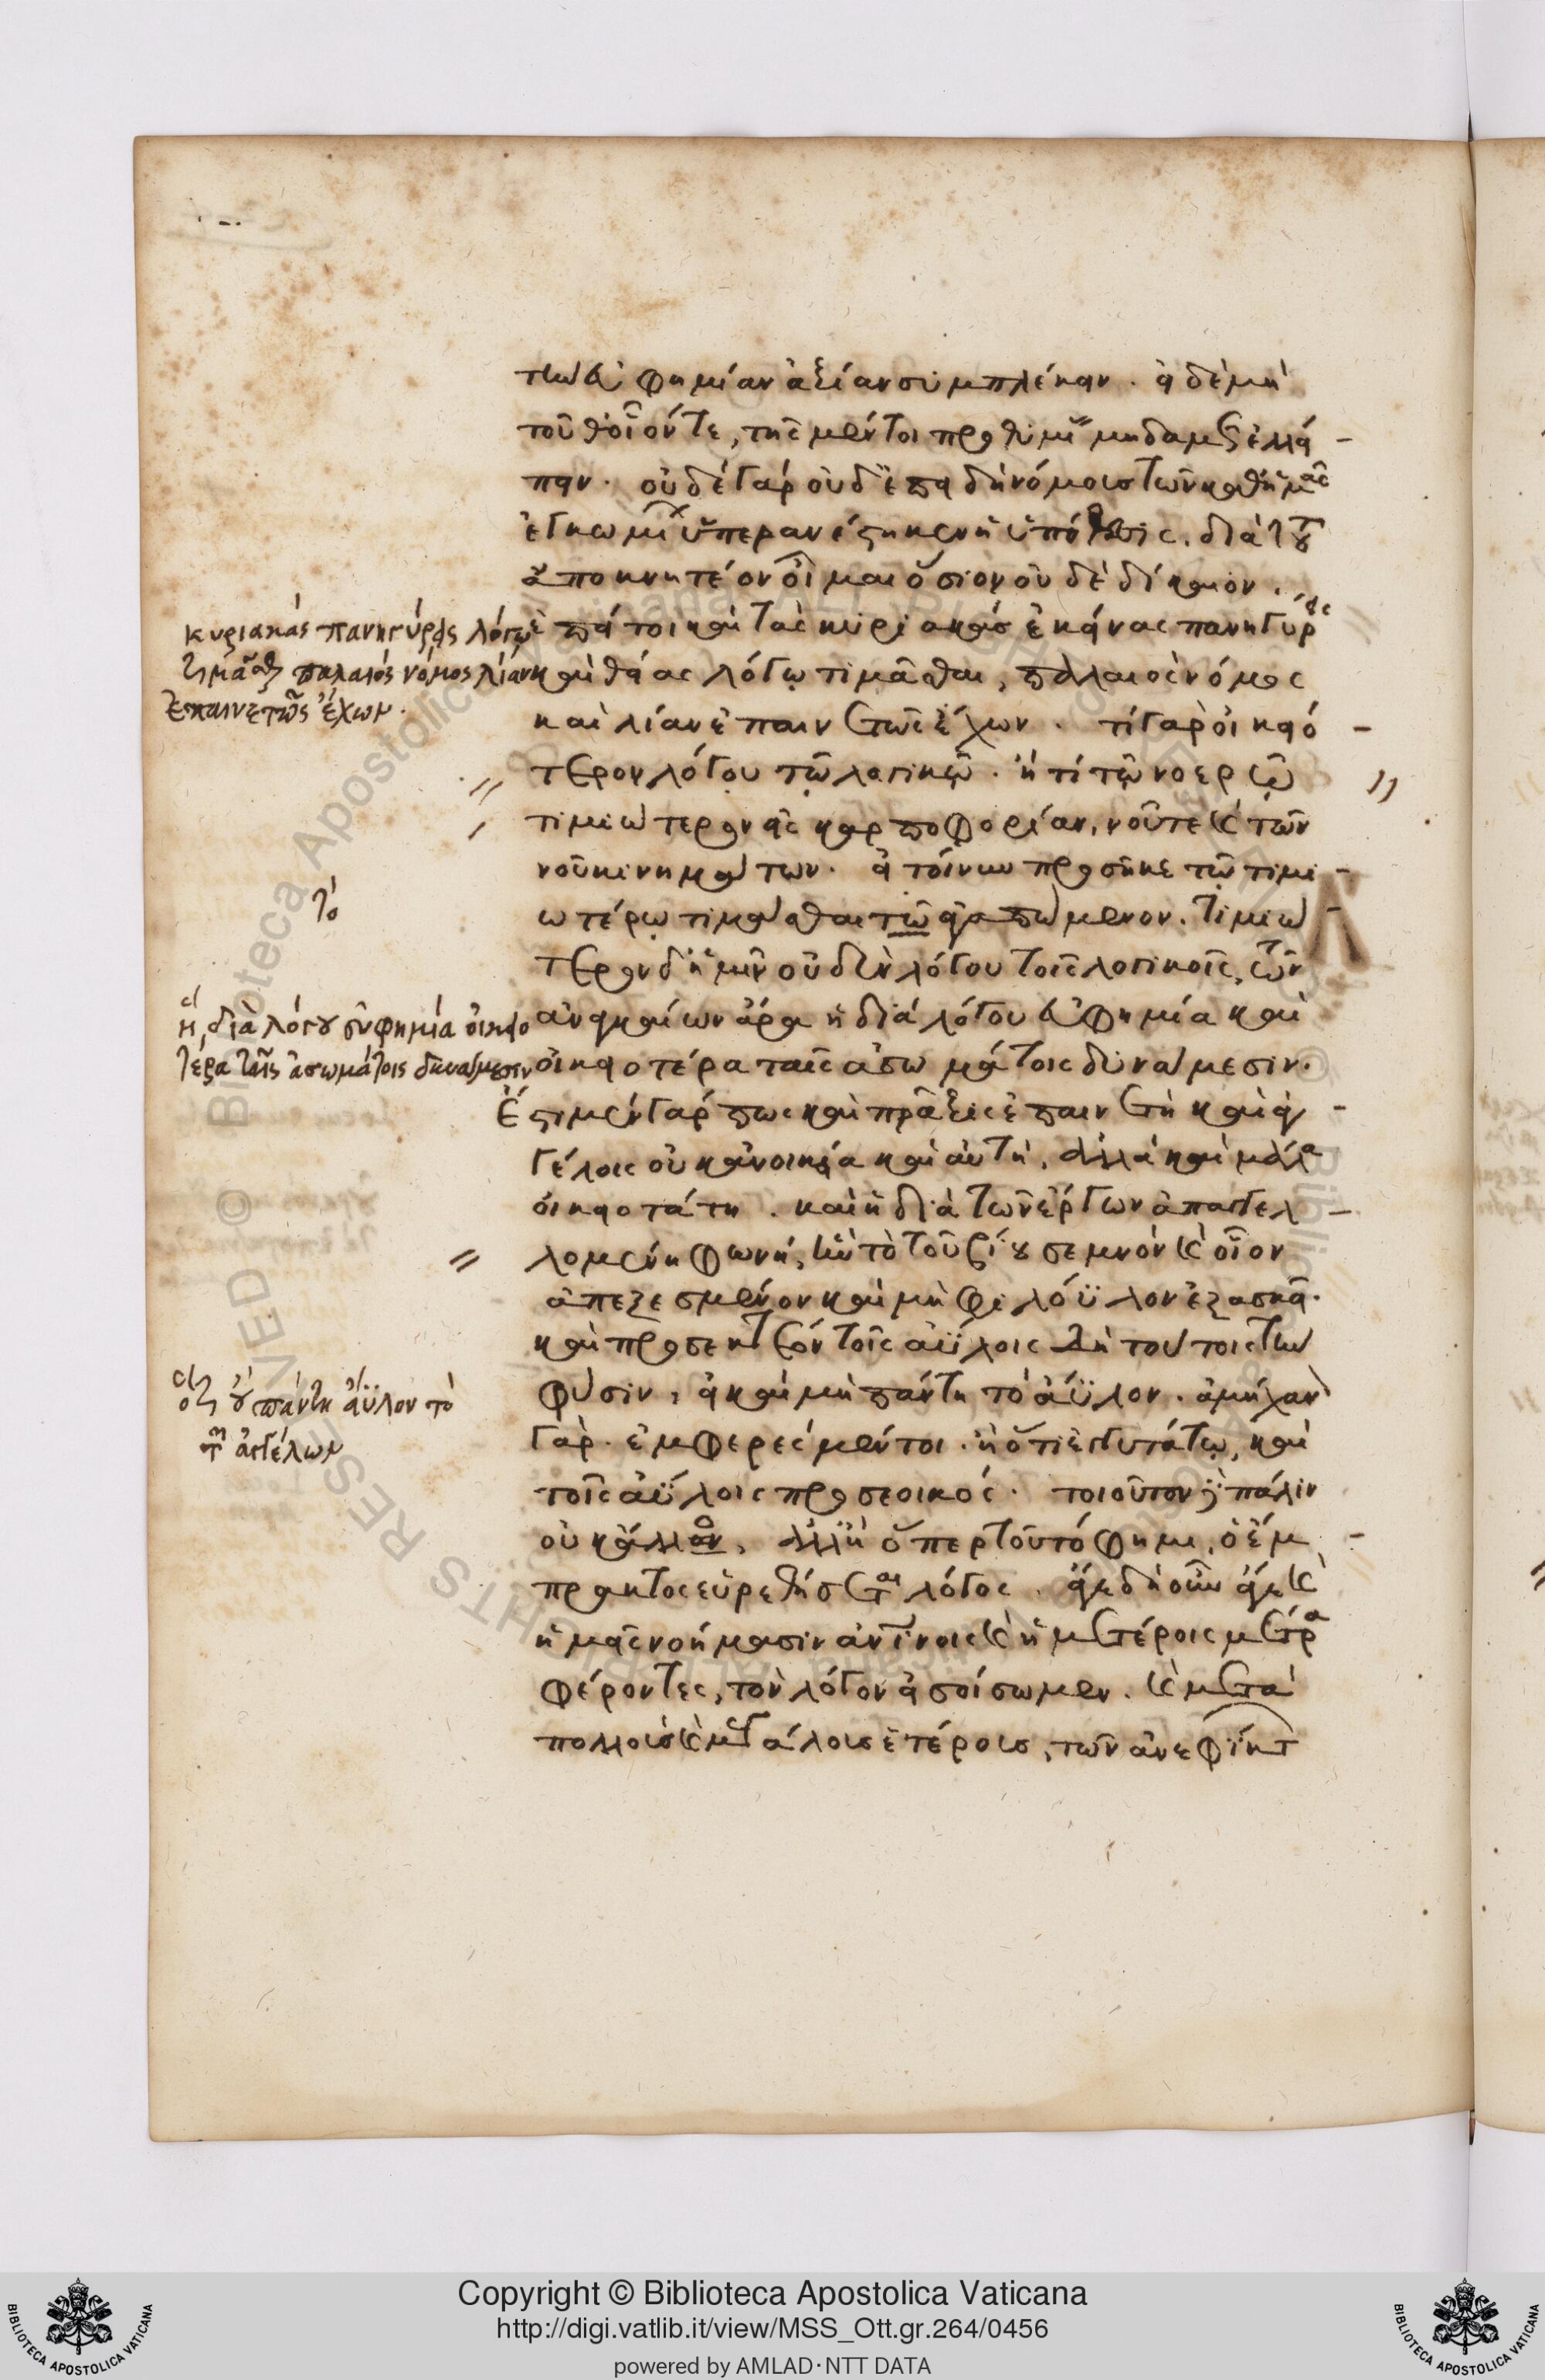 τὴν εὐφημίαν ἀξίαν συμπλέκειν. εἰ δὲ μὴ
τοῦθ' οἷόν τε, τῆς μέντοι προθυμίας μηδαμῶς ἐλλεί-
πειν. οὐδὲ γὰρ οὐδ' ἐπειδὴ νόμοις τῶν καθ' ἡμᾶς
ἐγκωμίων ὑπερανέστηκεν ἡ ὑπόθεσις, διὰ τοῦτ'
ἀποκνητέον οἶμαι ὅσιον οὐδὲ δίκαιον.
ἐπεί τοι καὶ τὰς κυριακὰς ἐκείνας πανηγύρεις
καὶ θείας λόγῳ τιμᾶσθαι, παλαιὸς νόμος
καὶ λίαν ἐπαινετῶς ἔχων. τί γὰρ οἰκειό-
τερον λόγου τῷ λογικῷ. ἢ τί τῷ νοερῷ
τιμιώτερον εἰς καρποφορίαν, νοῦ τε καὶ τῶν
νοῦ κινημάτων. εἰ τοίνυν προσῆκε τῷ τιμι-
ωτέρῳ τιμᾶσθαι τῷ μενον. τιμιώ-
τερον δ' ἡμῖν οὐδὲν λόγου τοῖς λογικοῖς, τῶν
ἀναγκαίων ἄρα ἡ διὰ λόγου εὐφημία καὶ
οἰκειοτέρα ταῖς ἀσωμάτοις δυνάμεσιν.
Ἔστι μὲν γάρ πως καὶ πρᾶξις ἐπαινετὴ καὶ ἀγ-
γέλοις οὐκ ἀνοικεία καὶ αὐτή, ἀλλὰ καὶ μάλα
οἰκειοτάτη. καὶ ἡ διὰ τῶν ἔργων ἀπαγγελ-
λομένη φωνή, κἂν τὸ τοῦ βίου σεμνὸν καὶ οἷον
ἀπεξεσμένον καὶ μὴ φιλόϋλον ἐξασκεῖ.
καὶ προσεκτέον τοῖς ἀΰλοις τούτοις τὴν
φύσιν, εἰ καὶ μὴ πάντη τὸ ἄϋλον. ἀμήχανον
γάρ. ἐμφερὲς μέντοι. ἢ ὅτι ἐγγυτάτω, καὶ
τοῖς ἀΰλοις προσεοικός. τοιοῦτον πάλιν
οὐκ ἄλλο, ἀλλ' ἢ ὅπερ τοῦτό φημι, ὁ ἔμ-
πρακτος εὑρεθήσεται λόγος. ἄγε δὴ οὖν ἄγε καὶ
ἡμεῖς νοήμασιν καὶ ἡμετέροις μέτρα
φέροντες, τὸν λόγον εἰσοίσωμεν. καὶ μετὰ
πολλοῖς καὶ μεγάλοις ἑτέροις, τῶν ἀνεφίκτ
κυριακὰς πανηγύρεις λόγῳ
τιμᾶσθαι παλαιὸς νόμος λίαν
ἐπαινετῶς ἔχων.
τὸ
ἡ διὰ λόγου εὐφημία οἰκειο
τέρα ταῖς ἀσωμάτοις δυνάμεσιν
ὅτι οὐ πάντη ἄϋλον τὸ
τῶν ἀγγέλων
Copyright © Biblioteca Apostolica Vaticana
http://digi.vatlib.it/view/MSS_Ott.gr.264/0456
powered by AMLAD·NTT DATA
BIBLIOTECA APOSTOLICA VATICANA
BIBLIOTECA APOSTOLICA VATICANA